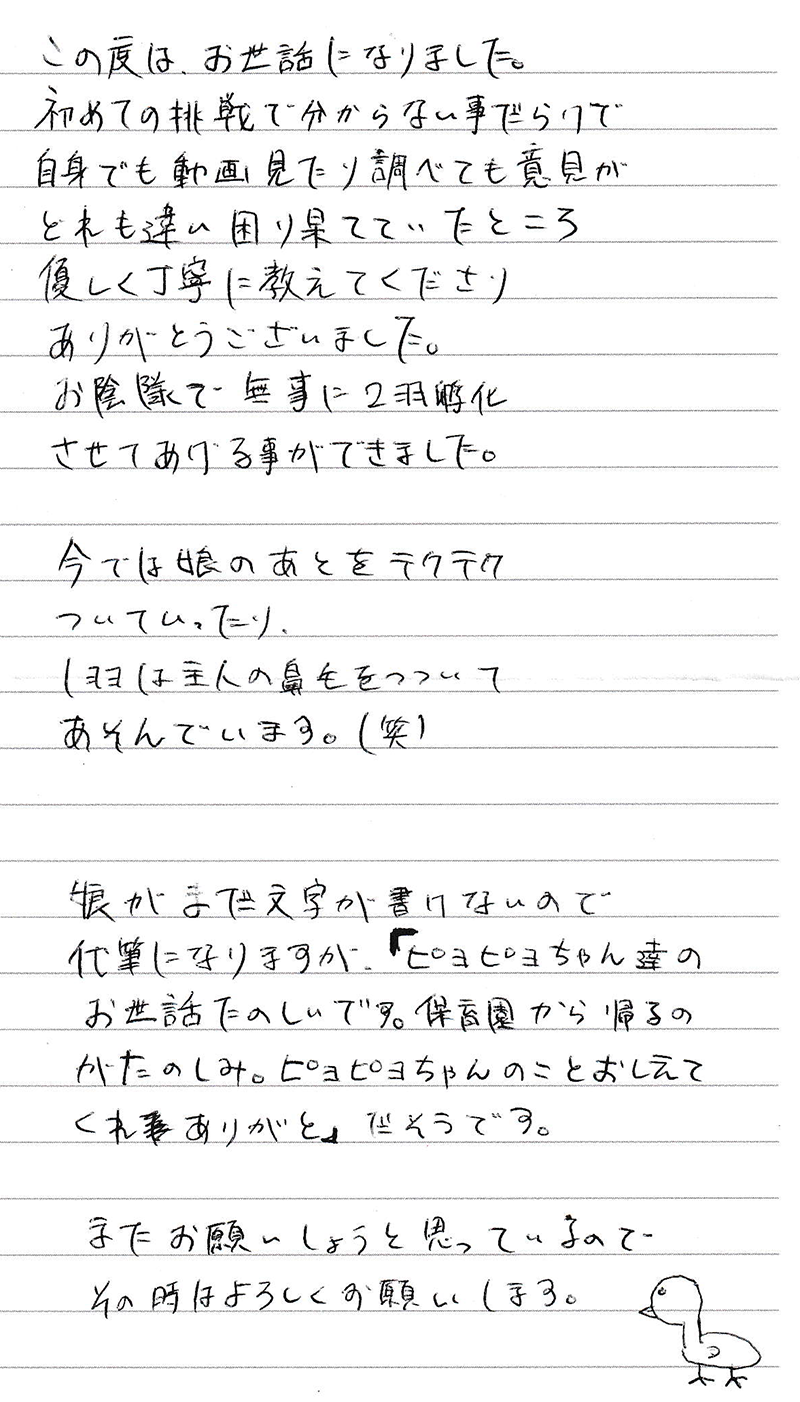 この度は、お世話になりました。
初めての挑戦で分からない事だらけで
自身でも動画見たり調べても意見が
どれも違い困り果てていたところ
優しく丁寧に教えてくださり
ありがとうございました。
お陰様で無事に2羽孵化
させてあげる事ができました。
今では娘のあとをテクテク
ついていったり、
1羽は主人の鼻毛をつついて
あそんでいます。(笑)
娘がまだ文字が書けないので
代筆になりますが、「ピヨピヨちゃん達の
お世話たのしいです。保育園から帰るの
がたのしみ。ピヨピヨちゃんのことおしえて
くれ ありがと」だそうです。
またお願いしようと思っているので
その時はよろしくお願いします。